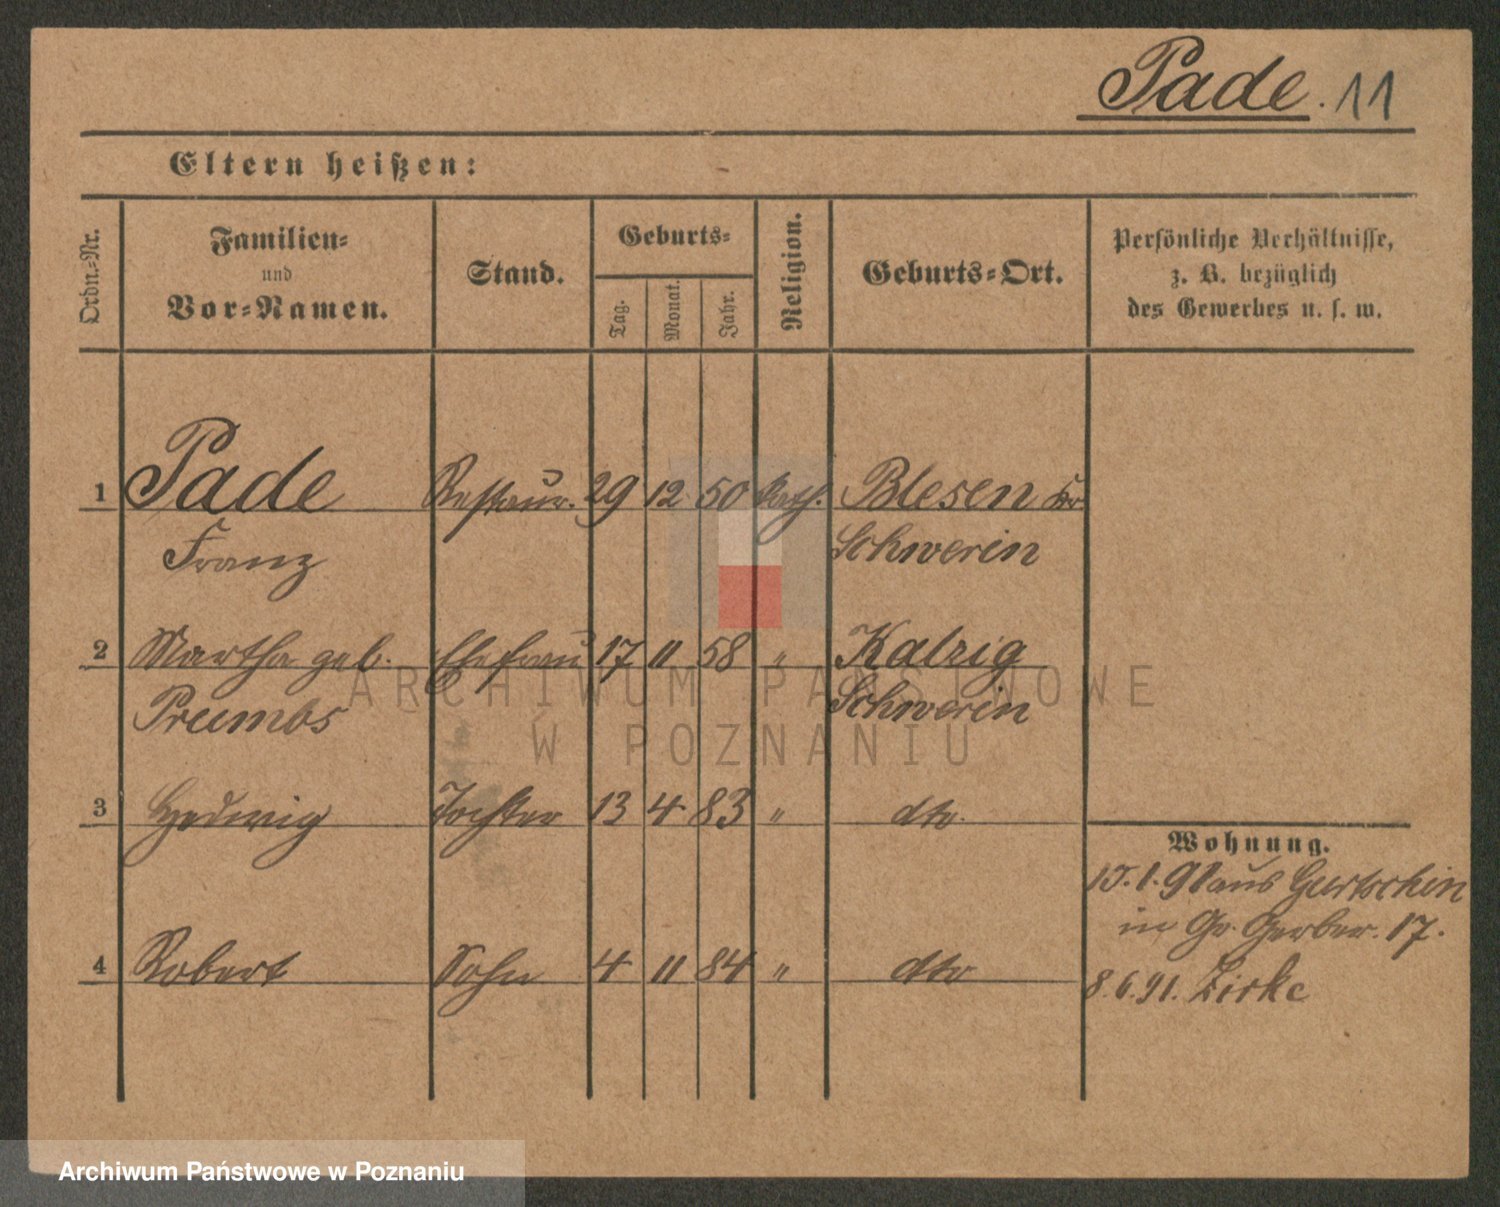 Pade. 11
Eltern heißen:
Ordn.=Nr.
Familien=
und
Vor=Namen.
Stand.
Geburts=
Tag.
Monat.
Jahr.
Religion.
Geburts=Ort.
Persönliche Verhältnisse,
z. B. bezüglich
des Gewerbes u. s. w.
1 Pade Restaur. 29 12 50 kath. Blesen Kr
Franz Schwerin
2 Martha geb. Ehefrau 17 11 58 " Kalzig
Prumbs Schwerin
3 Hedwig Tochter 13 4 83 " dto.
Wohnung.
15.1.91 aus Gurtschin
in Gr. Gerber. 17.
4 Robert Sohn 4 11 84 " dto
8.6.91. Zirke
ARCHIWUM PAŃSTWOWE
W POZNANIU
Archiwum Państwowe w Poznaniu